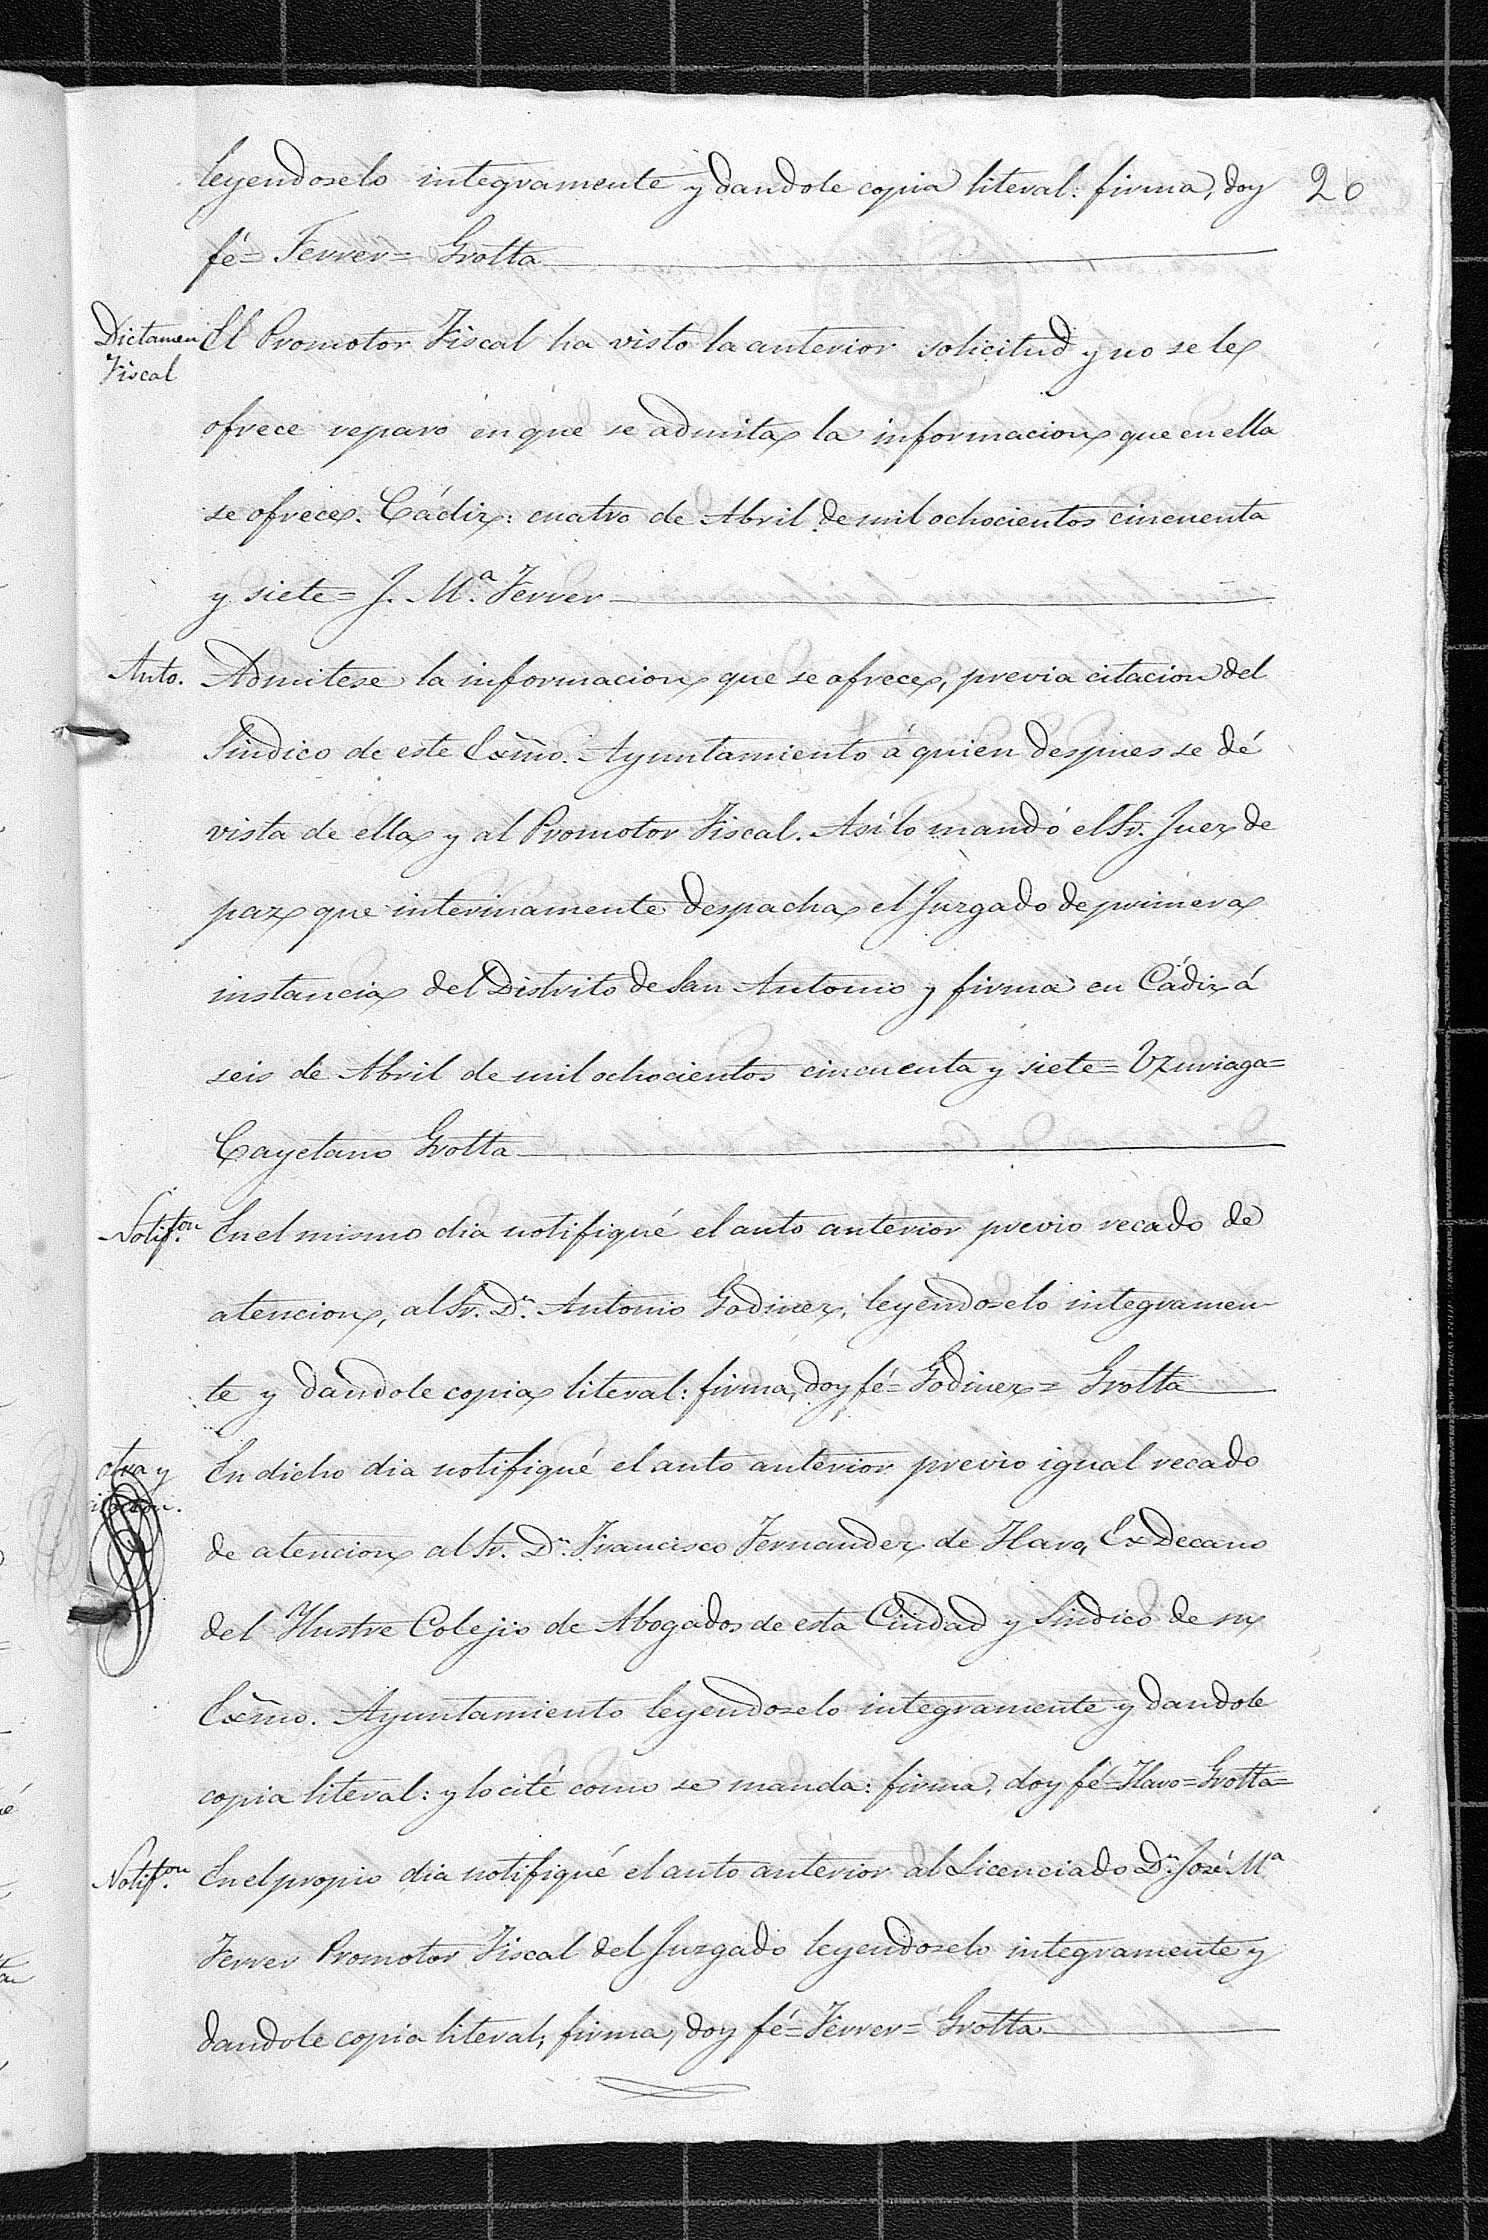 leyendoselo integramente y dandole copia literal: firma, doy
20
fé= Ferrer= Grotta
Dictamen
Fiscal
El Promotor Fiscal ha visto la anterior solicitud y no se le
ofrece reparo en que se admita la informacion que en ella
se ofrece. Cádiz: cuatro de Abril de mil ochocientos cincuenta
y siete= J. M.ª Ferrer
Auto.
Admitese la informacion que se ofrece, previa citacion del
Sindico de este Exmo. Ayuntamiento á quien despues se dé
vista de ella y al Promotor Fiscal. Así lo mandó el Sr. Juez de
paz que interinamente despacha el Juzgado de primera
instancia del Distrito de San Antonio y firma en Cádiz á
seis de Abril de mil ochocientos cincuenta y siete= Uzuriaga=
Cayetano Grotta
Notif.on
En el mismo dia notifiqué el auto anterior previo recado de
atencion, al Sr. Dn. Antonio Godinez, leyendoselo integramen
te y dandole copia literal: firma, doy fé= Godinez= Grotta
otra y
En dicho dia notifiqué el auto anterior previo igual recado
de atencion al Sr. Dn. Francisco Fernandez de Haro, Ex Decano
del Ilustre Colejio de Abogados de esta Ciudad y Sindico de su
Exmo. Ayuntamiento leyendoselo integramente y dandole
copia literal: y lo cité como se manda: firma, doy fé= Haro= Grotta=
Notif.on
En el propio dia notifiqué el auto anterior al Licenciado Dn. José Mª
Ferrer Promotor Fiscal del Juzgado leyendoselo integramente y
dandole copia literal, firma, doy fé= Ferrer= Grotta